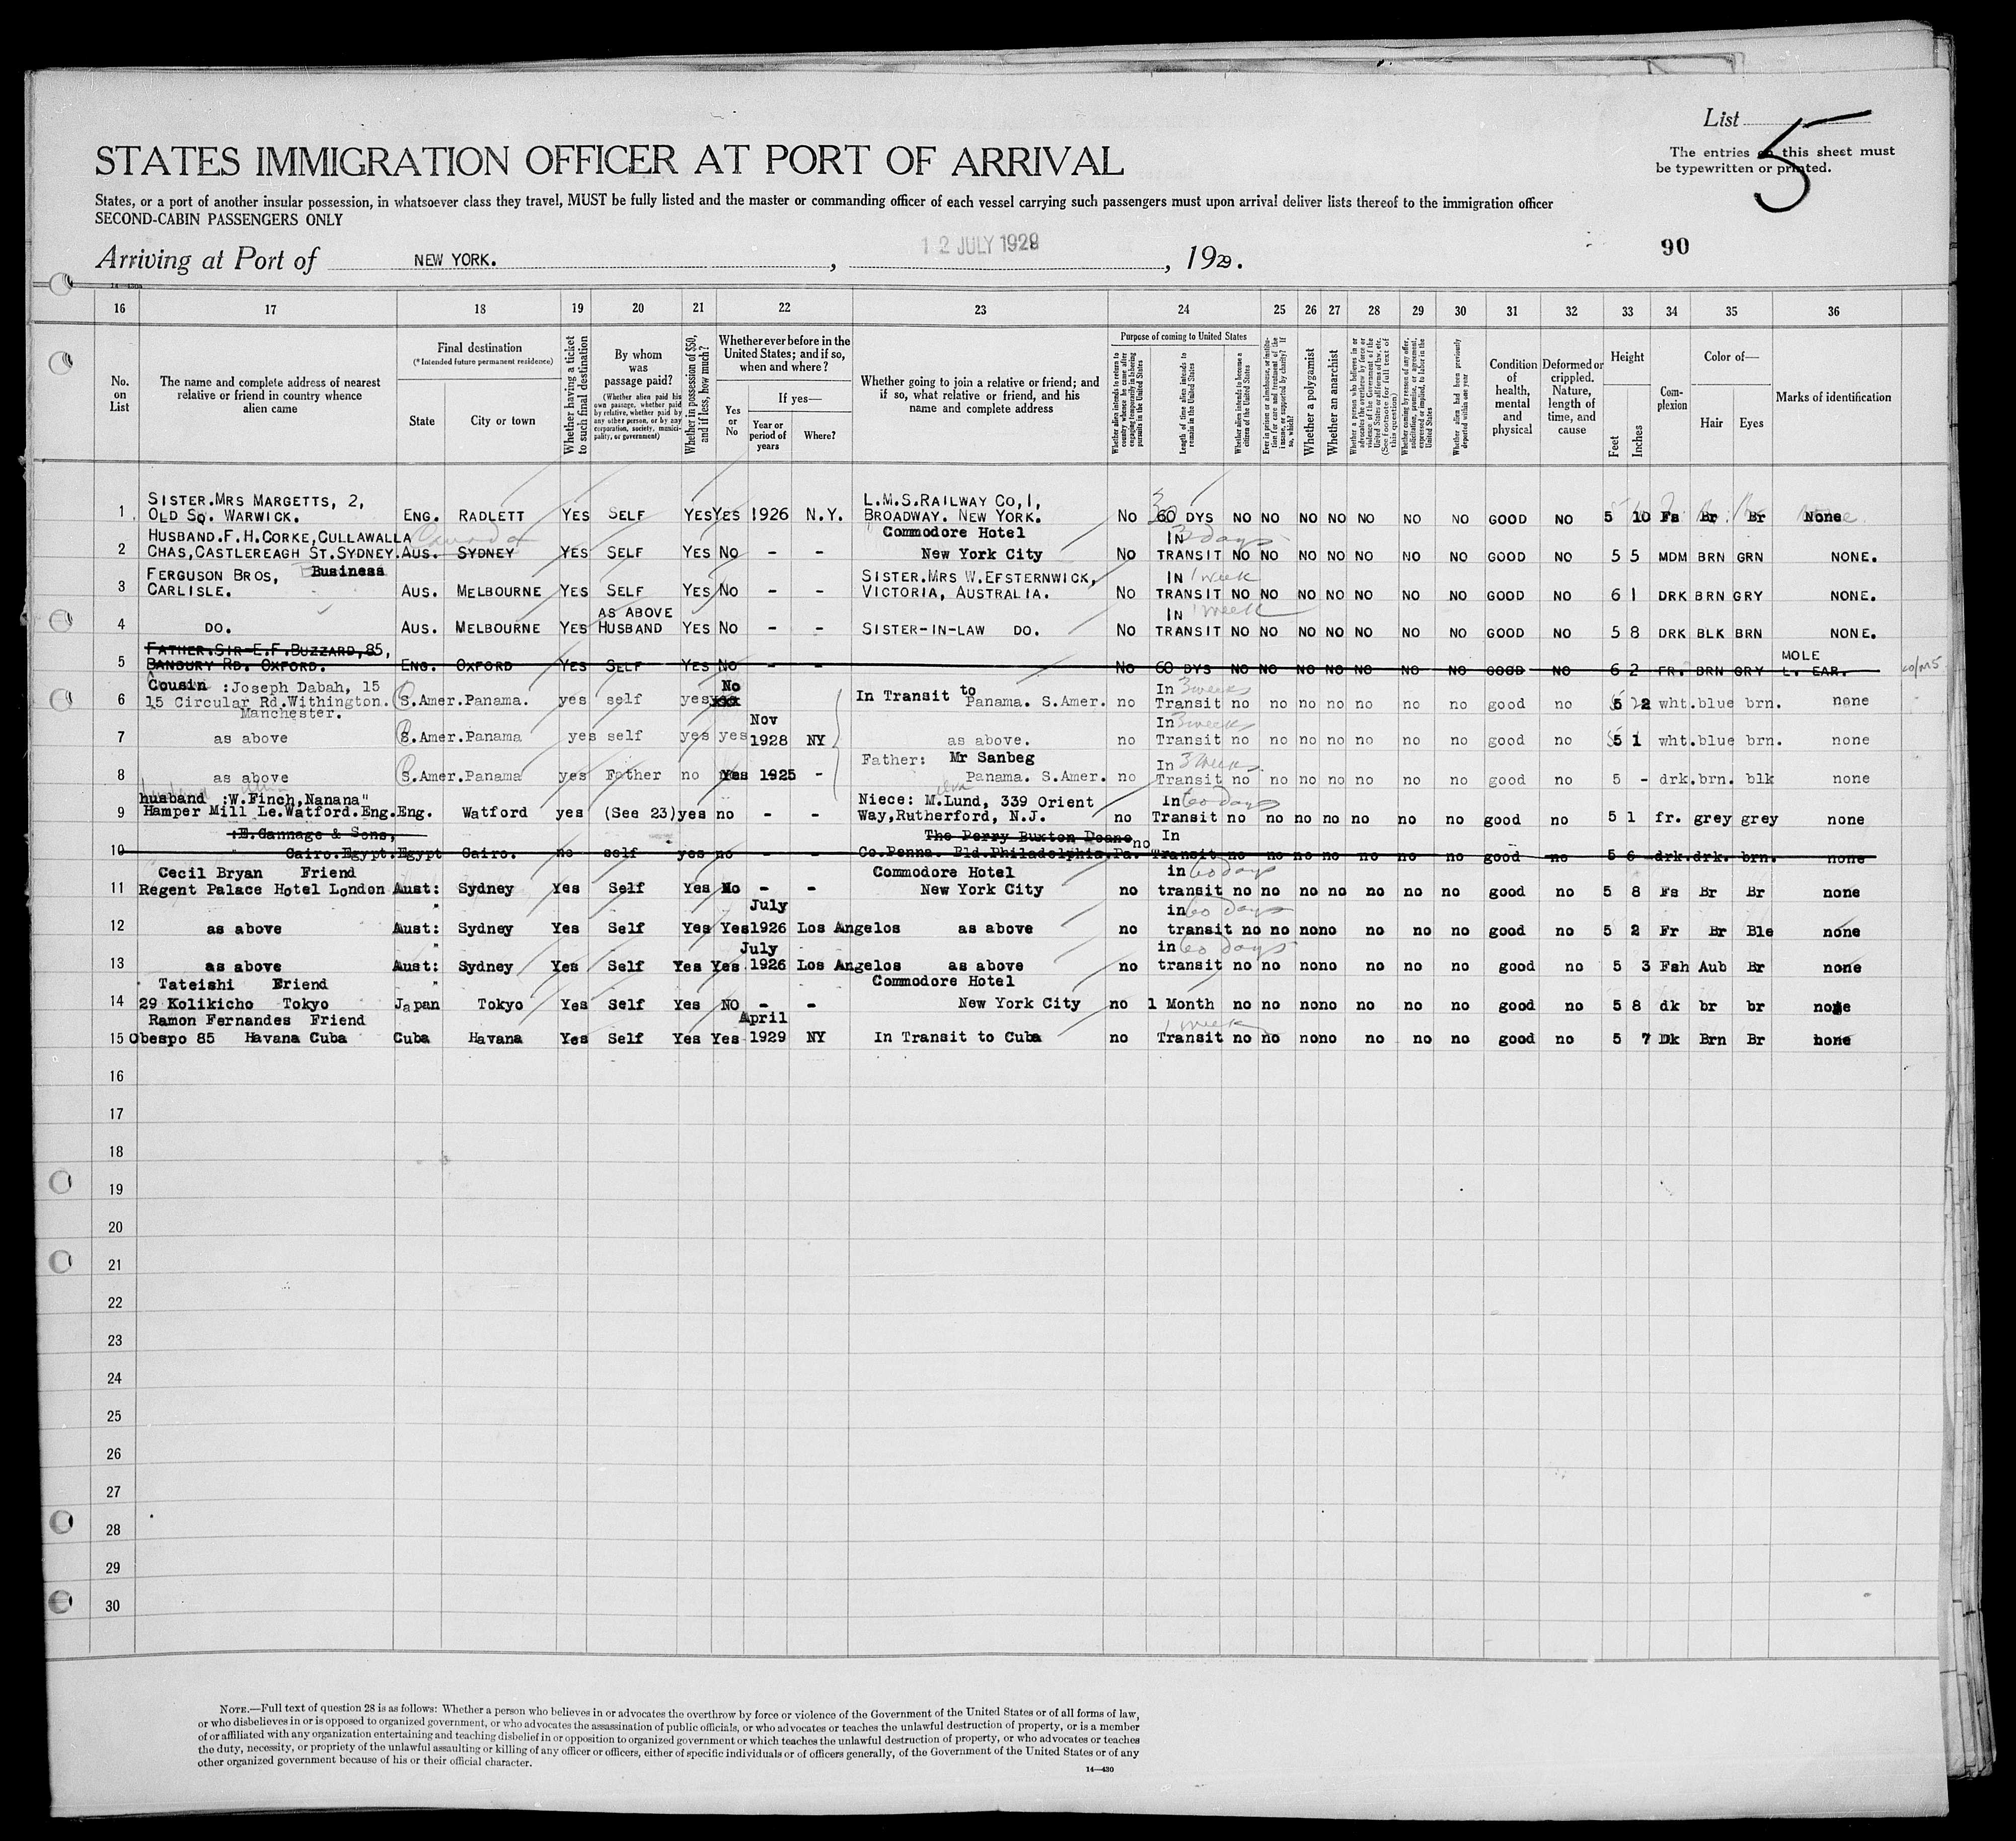 List 5
The entries on this sheet must
be typewritten or printed.
STATES IMMIGRATION OFFICER AT PORT OF ARRIVAL
States, or a port of another insular possession, in whatsoever class they travel, MUST be fully listed and the master or commanding officer of each vessel carrying such passengers must upon arrival deliver lists thereof to the immigration officer
SECOND-CABIN PASSENGERS ONLY
90
Arriving at Port of NEW YORK. , 12 JULY 1929 , 1929.
16 17 18 19 20 21 22 23 24 25 26 27 28 29 30 31 32 33 34 35 36
No. on List
The name and complete address of nearest relative or friend in country whence alien came
Final destination
(*Intended future permanent residence)
State
City or town
Whether having a ticket to such final destination
By whom was passage paid?
(Whether alien paid his own passage, whether paid by relative, whether paid by any other person, or by any corporation, society, municipality, or government)
Whether in possession of $50, and if less, how much?
Whether ever before in the United States; and if so, when and where?
Yes or No
If yes—
Year or period of years
Where?
Whether going to join a relative or friend; and if so, what relative or friend, and his name and complete address
Purpose of coming to United States
Whether alien intends to return to country whence he came after engaging temporarily in laboring pursuits in the United States
Length of time alien intends to remain in the United States
Whether alien intends to become a citizen of the United States
Ever in prison or almshouse, or institution for care and treatment of the insane, or supported by charity? If so, which?
Whether a polygamist
Whether an anarchist
Whether a person who believes in or advocates the overthrow by force or violence of the Government of the United States or all forms of law, etc. (See footnote for full text of this question)
Whether coming by reason of any offer, solicitation, promise, or agreement, expressed or implied, to labor in the United States
Whether alien had been previously deported within one year
Condition of health, mental and physical
Deformed or crippled. Nature, length of time, and cause
Height
Feet
Inches
Complexion
Color of—
Hair
Eyes
Marks of identification
SISTER.MRS MARGETTS, 2, L.M.S.RAILWAY CO,1,
1 OLD SQ. WARWICK. ENG. RADLETT YES SELF YES YES 1926 N.Y. BROADWAY. NEW YORK. NO 60 DYS NO NO NO NO NO NO NO GOOD NO 5 10 Fs Br Br None
HUSBAND.F.H.CORKE,CULLAWALLA Canada Commodore Hotel IN 3 days
2 CHAS,CASTLEREAGH ST.SYDNEY. AUS. SYDNEY YES SELF YES NO - - New York City NO TRANSIT NO NO NO NO NO NO NO GOOD NO 5 5 MDM BRN GRN NONE.
FERGUSON BROS, Business SISTER.MRS W.EFSTERNWICK, IN 1 week
3 CARLISLE. AUS. MELBOURNE YES SELF YES NO - - VICTORIA, AUSTRALIA. NO TRANSIT NO NO NO NO NO NO NO GOOD NO 6 1 DRK BRN GRY NONE.
AS ABOVE IN 1 week
4 DO. AUS. MELBOURNE YES HUSBAND YES NO - - SISTER-IN-LAW DO. NO TRANSIT NO NO NO NO NO NO NO GOOD NO 5 8 DRK BLK BRN NONE.
FATHER.SIR-E.F.BUZZARD,85, MOLE
5 BANBURY RD. OXFORD. ENG. OXFORD YES SELF YES NO - - NO 60 DYS NO NO NO NO NO NO NO GOOD NO 6 2 FR. BRN GRY L. EAR.
Cousin :Joseph Dabah, 15 No In Transit to In 3 weeks
6 15 Circular Rd.Withington. S.Amer.Panama. yes self yes xxx Panama. S.Amer. no Transit no no no no no no no good no 5 2 wht.blue brn. none
Manchester.
Nov In 3 week
7 as above S.Amer.Panama yes self yes yes 1928 NY as above. no Transit no no no no no no no good no 5 1 wht.blue brn. none
Father: Mr Sanbeg In 3 weeks
8 as above S.Amer.Panama yes Father no Yes 1925 - Panama. S.Amer. no Transit no no no no no no no good no 5 - drk.brn. blk none
husband :W.Finch,Nanana" Niece: M.Lund, 339 Orient In 60 days
9 Hamper Mill Le.Watford.Eng. Eng. Watford yes (See 23) yes no - - Way,Rutherford, N.J. no Transit no no no no no no no good no 5 1 fr. grey grey none
:E.Gannage & Sons, The Perry Buxton Doane no In
10 " Cairo.Egypt. Egypt Cairo. no self yes no - - Co.Penna. Bld.Philadelphia.Pa. Transit no no no no no no no good no 5 6 drk.drk. brn. none
Cecil Bryan Friend Commodore Hotel in 60 days
11 Regent Palace Hotel London Aust: Sydney Yes Self Yes No - - New York City no transit no no no no no no no good no 5 8 Fs Br Br none
" July in 60 days
12 as above Aust: Sydney Yes Self Yes Yes 1926 Los Angelos as above no transit no no no no no no no good no 5 2 Fr Br Ble none
" July in 60 days
13 as above Aust: Sydney Yes Self Yes Yes 1926 Los Angelos as above no transit no no no no no no no good no 5 3 Fsh Aub Br none
Tateishi Friend " Commodore Hotel
14 29 Kolikicho Tokyo Japan Tokyo Yes Self Yes NO - - New York City no 1 Month no no no no no no no good no 5 8 dk br br none
Ramon Fernandes Friend April 1 week
15 Obespo 85 Havana Cuba Cuba Havana Yes Self Yes Yes 1929 NY In Transit to Cuba no Transit no no no no no no no good no 5 7 Dk Brn Br none
16
17
18
19
20
21
22
23
24
25
26
27
28
29
30
NOTE.—Full text of question 28 is as follows: Whether a person who believes in or advocates the overthrow by force or violence of the Government of the United States or of all forms of law,
or who disbelieves in or is opposed to organized government, or who advocates the assassination of public officials, or who advocates or teaches the unlawful destruction of property, or is a member
of or affiliated with any organization entertaining and teaching disbelief in or opposition to organized government or which teaches the unlawful destruction of property, or who advocates or teaches
the duty, necessity, or propriety of the unlawful assaulting or killing of any officer or officers, either of specific individuals or of officers generally, of the Government of the United States or of any
other organized government because of his or their official character.
14—430